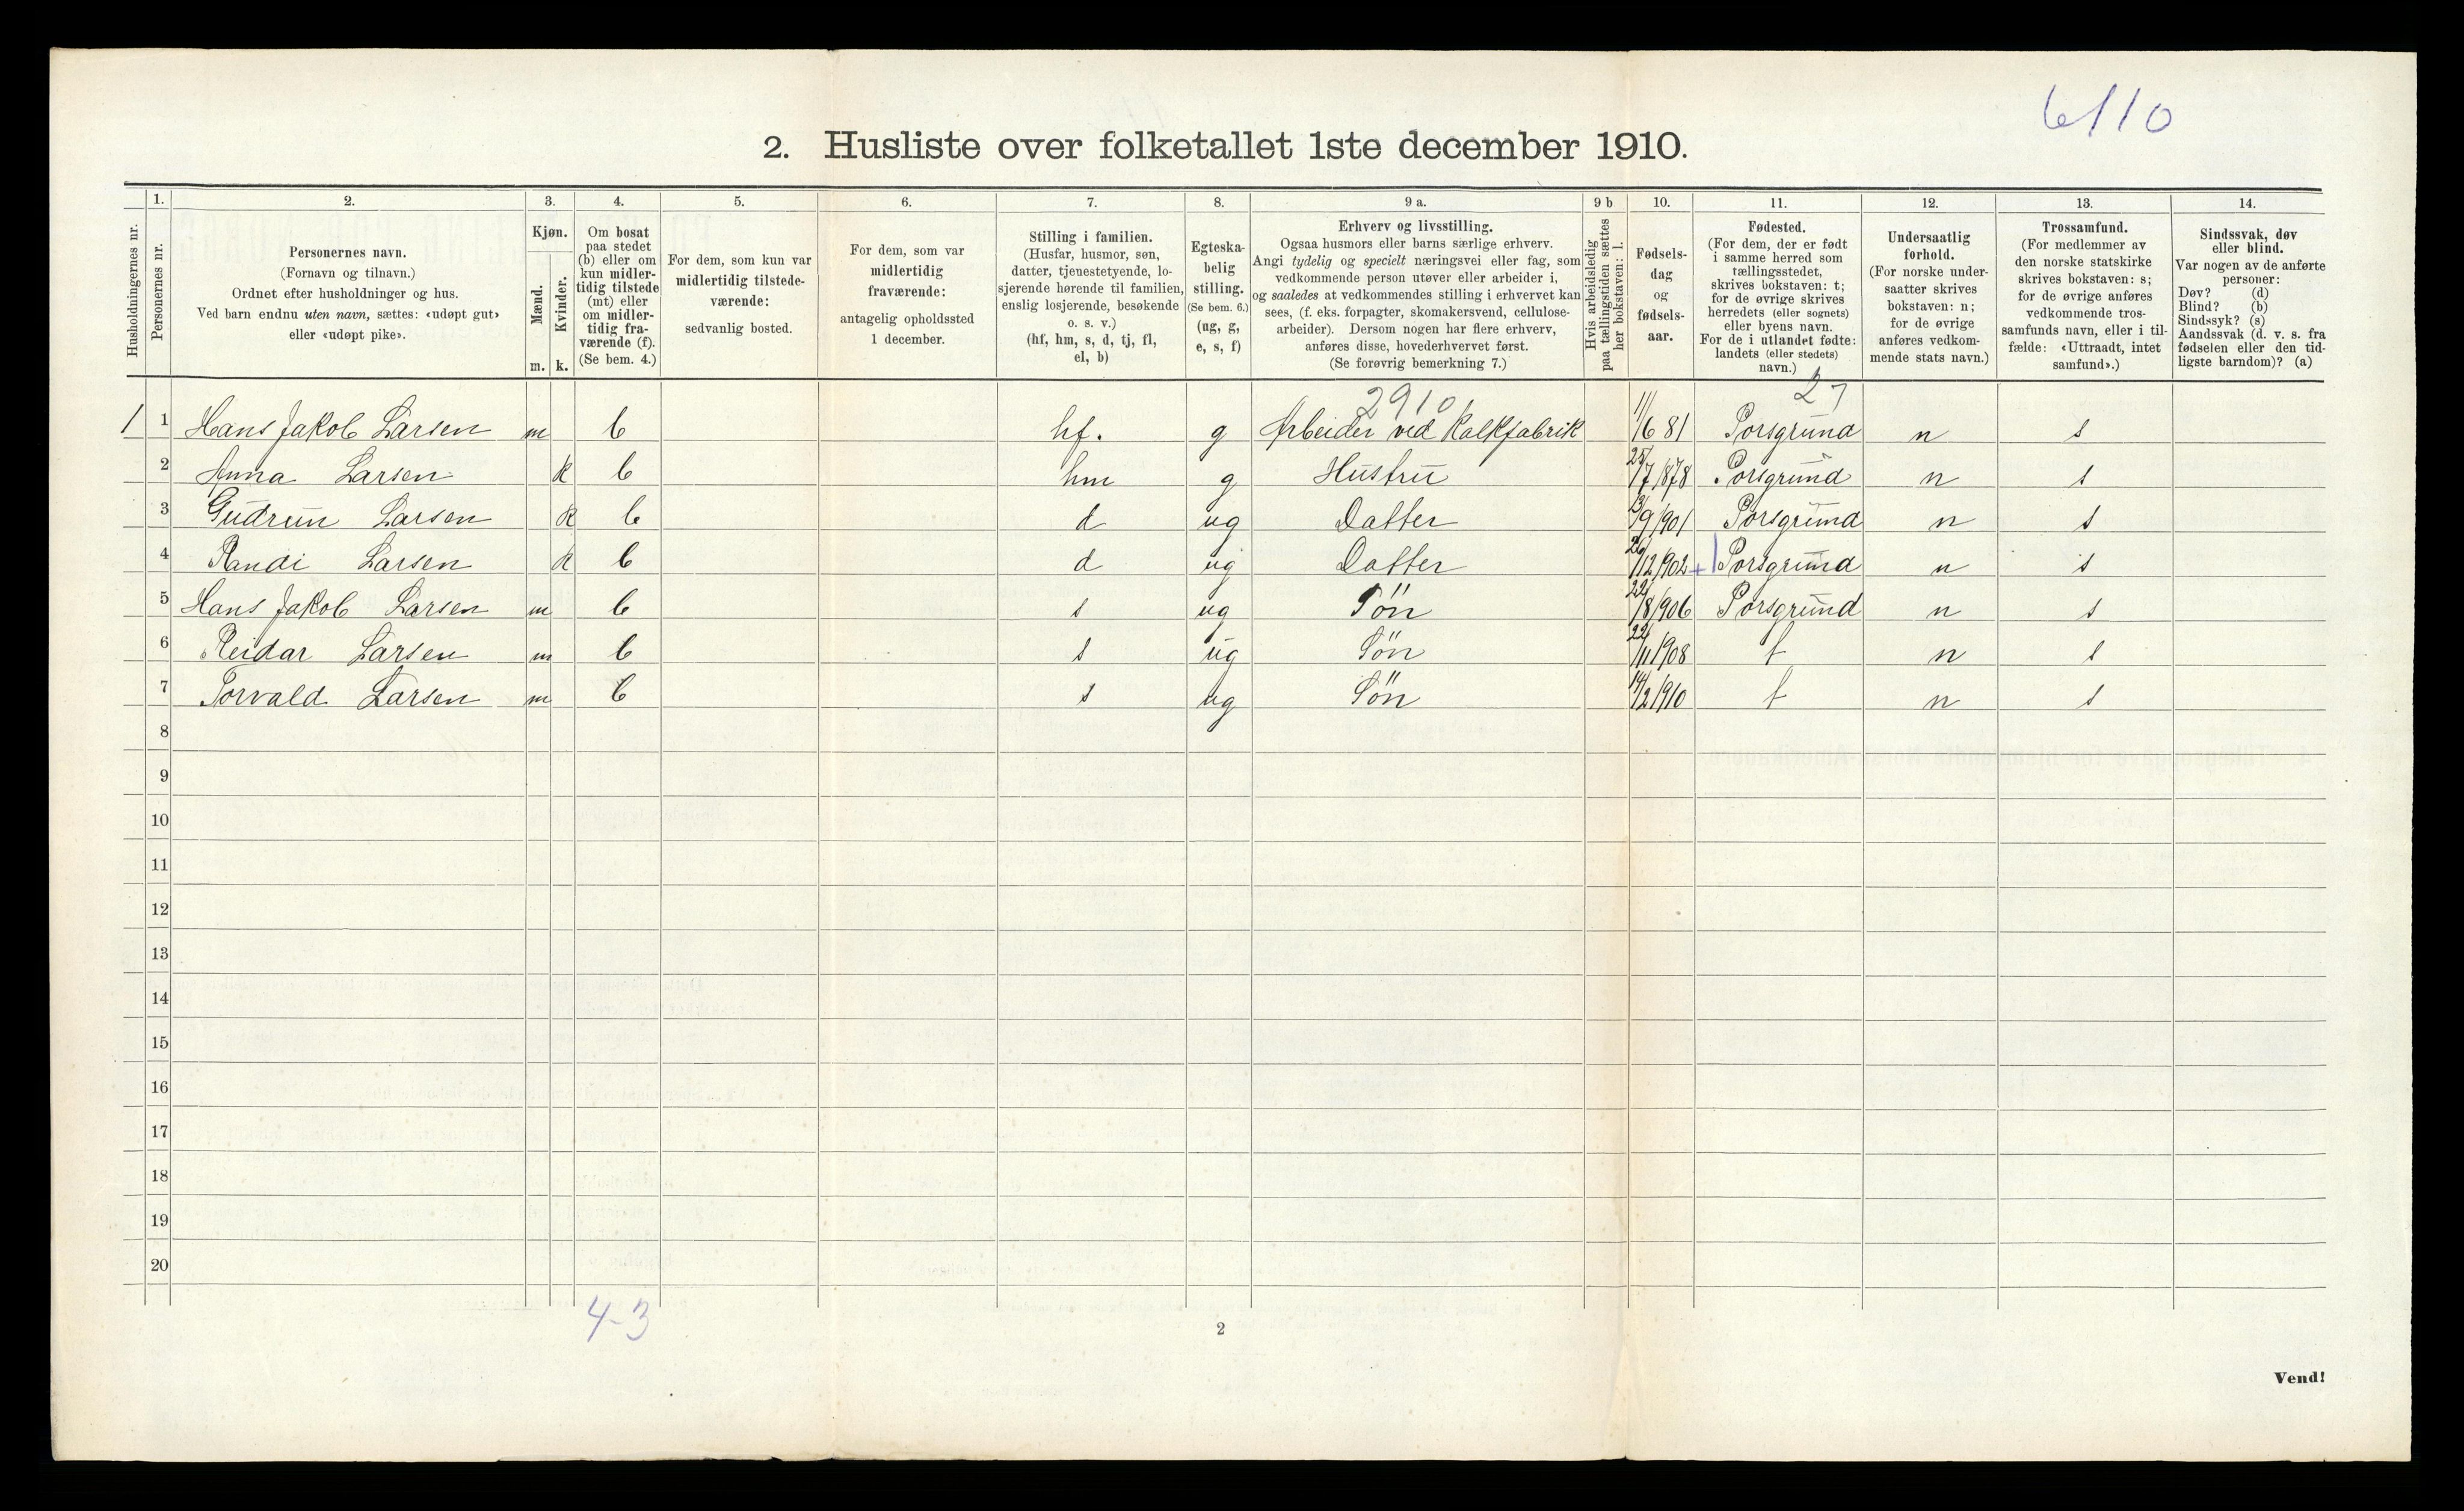 6110
2. Husliste over folketallet 1ste december 1910.
Husholdningernes nr.
1.
Personernes nr.
2.
Personernes navn.
(Fornavn og tilnavn.)
Ordnet efter husholdninger og hus.
Ved barn endnu uten navn, sættes: «udøpt gut»
eller «udøpt pike».
3.
Kjøn.
Mænd.
Kvinder.
m. k.
4.
Om bosat
paa stedet
(b) eller om
kun midler-
tidig tilstede
(mt) eller
om midler-
tidig fra-
værende (f).
(Se bem. 4.)
5.
For dem, som kun var
midlertidig tilstede-
værende:
sedvanlig bosted.
6.
For dem, som var
midlertidig
fraværende:
antagelig opholdssted
1 december.
7.
Stilling i familien.
(Husfar, husmor, søn,
datter, tjenestetyende, lo-
sjerende hørende til familien,
enslig losjerende, besøkende
o. s. v.)
(hf, hm, s, d, tj, fl,
el, b)
8.
Egteska-
belig
stilling.
(Se bem. 6.)
(ug, g,
e, s, f)
9 a.
Erhverv og livsstilling.
Ogsaa husmors eller barns særlige erhverv.
Angi tydelig og specielt næringsvei eller fag, som
vedkommende person utøver eller arbeider i,
og saaledes at vedkommendes stilling i erhvervet kan
sees, (f. eks. forpagter, skomakersvend, cellulose-
arbeider). Dersom nogen har flere erhverv,
anføres disse, hovederhvervet først.
(Se forøvrig bemerkning 7.)
9 b
Hvis arbeidsledig
paa tællingstiden sættes
her bokstaven: l.
10.
Fødsels-
dag
og
fødsels-
aar.
11.
Fødested.
(For dem, der er født
i samme herred som
tællingsstedet,
skrives bokstaven: t;
for de øvrige skrives
herredets (eller sognets)
eller byens navn.
For de i utlandet fødte:
landets (eller stedets)
navn.)
12.
Undersaatlig
forhold.
(For norske under-
saatter skrives
bokstaven: n;
for de øvrige
anføres vedkom-
mende stats navn.)
13.
Trossamfund.
(For medlemmer av
den norske statskirke
skrives bokstaven: s;
for de øvrige anføres
vedkommende tros-
samfunds navn, eller i til-
fælde: «Uttraadt, intet
samfund».)
14.
Sindssvak, døv
eller blind.
Var nogen av de anførte
personer:
Døv? (d)
Blind? (b)
Sindssyk? (s)
Aandssvak (d. v. s. fra
fødselen eller den tid-
ligste barndom)? (a)
2910 27
1 1 Hans Jakob Larsen m b hf. g Arbeider ved Kalkfabrik 11/6 81 Porsgrund n s
2 Anna Larsen k b hm g Hustru 25/7 1878 Porsgrund n s
3 Gudrun Larsen k b d ug Datter 13/9 1901 Porsgrund n s
4 Randi Larsen k b d ug Datter 26/12 1902 + Porsgrund n s
5 Hans Jakob Larsen m b s ug Sön 22/8 1906 Porsgrund n s
6 Reidar Larsen m b s ug Sön 22/11 1908 t n s
7 Torvald Larsen m b s ug Sön 14/2 1910 t n s
8
9
10
11
12
13
14
15
16
17
18
19
20
4-3
2
Vend!